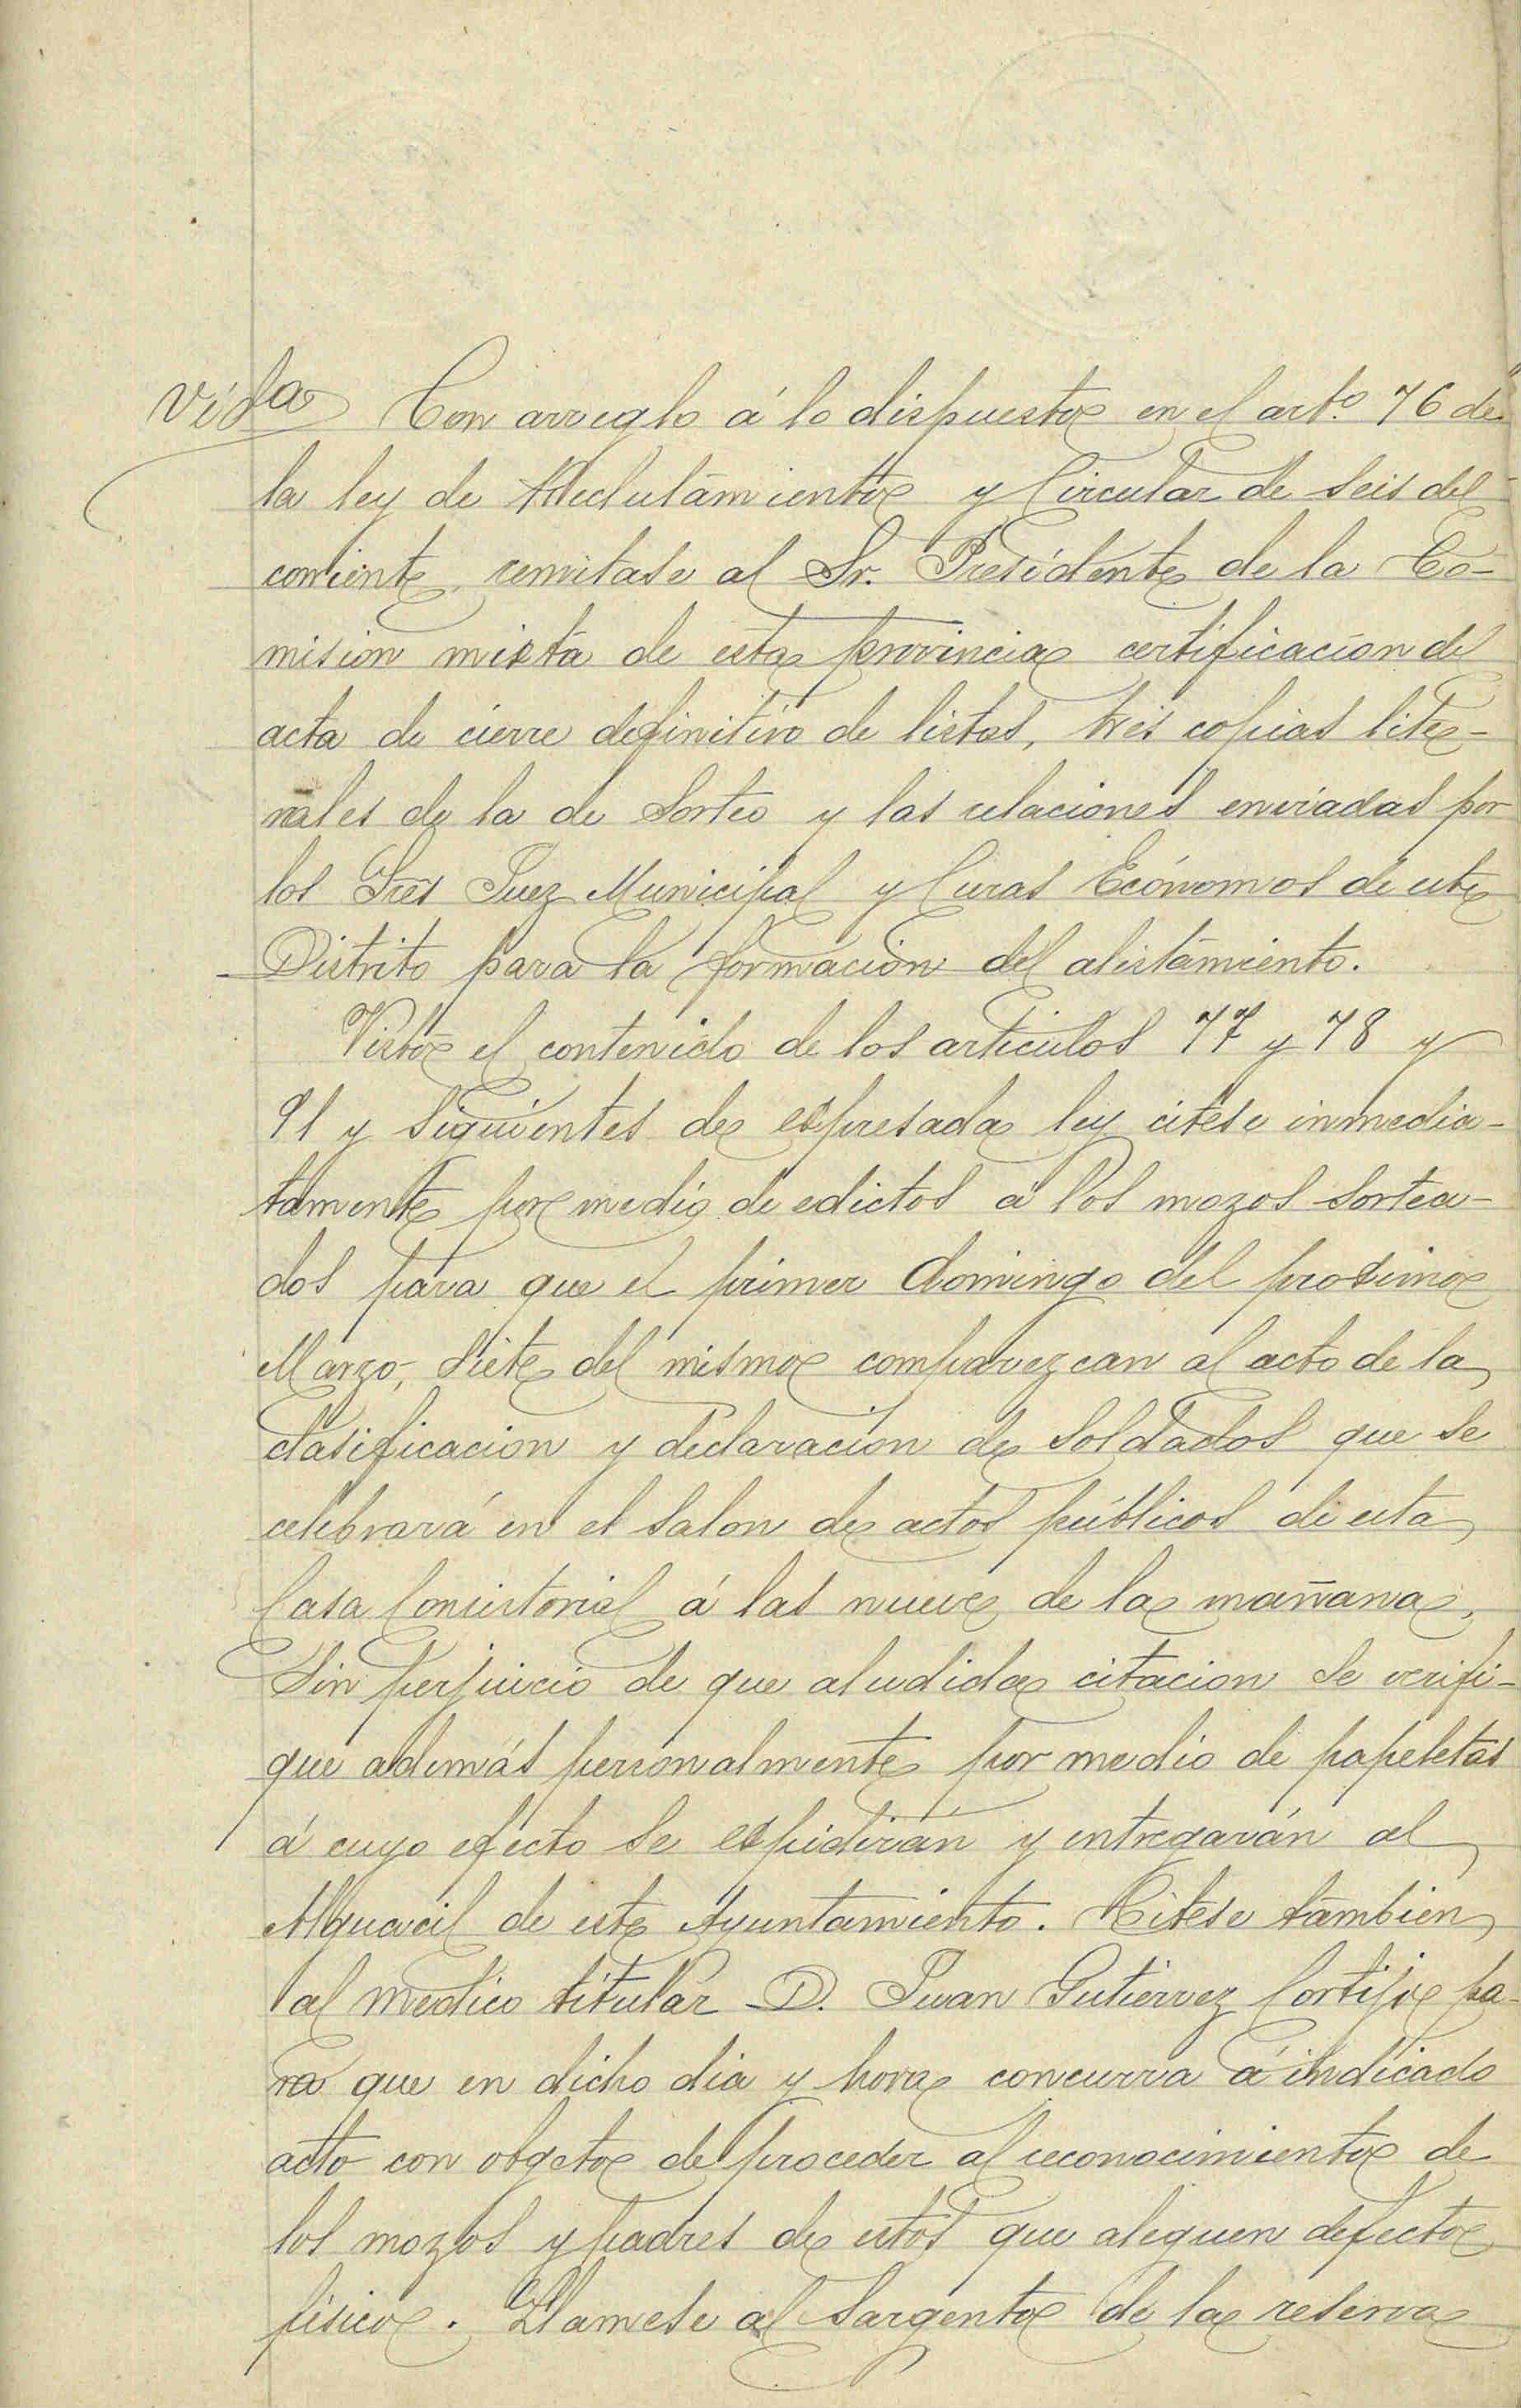 Vida Con arreglo á lo dispuesto en el art.º 76 de
la ley de Reclutamiento y Circular de seis del
corriente, remitase al Sr. Presidente de la Co-
mision mixta de esta provincia certificacion del
acta de cierre definitivo de listas, tres copias lite-
rales de la de Sorteo y las relaciones enviadas por
los Sres Juez Municipal y Curas Ecónomos de este
Distrito para la formación del alistamiento.
Visto el contenido de los articulos 77 y 78 y
91 y siguientes de espresada ley citese inmedia-
tamente por medio de edictos á los mozos sortea-
dos para que el primer domingo del proximo
Marzo, siete del mismo comparezcan al acto de la
clasificacion y declaracion de soldados que se
celebrará en el salon de actos públicos de esta
Casa Consistorial á las nueve de la mañana,
Sin perjuicio de que aludida citacion se verifi-
que además personalmente por medio de papeletas
á cuyo efecto se espidirán y entregarán al
Alguacil de este Ayuntamiento. Citese tambien
al medico titular D. Juan Gutierrez Cortijo pa-
ra que en dicho dia y hora concurra á indicado
acto con objeto de proceder al reconocimiento de
los mozos y padres de estos que aleguen defecto
fisico. Llamese al Sargento de la reserva